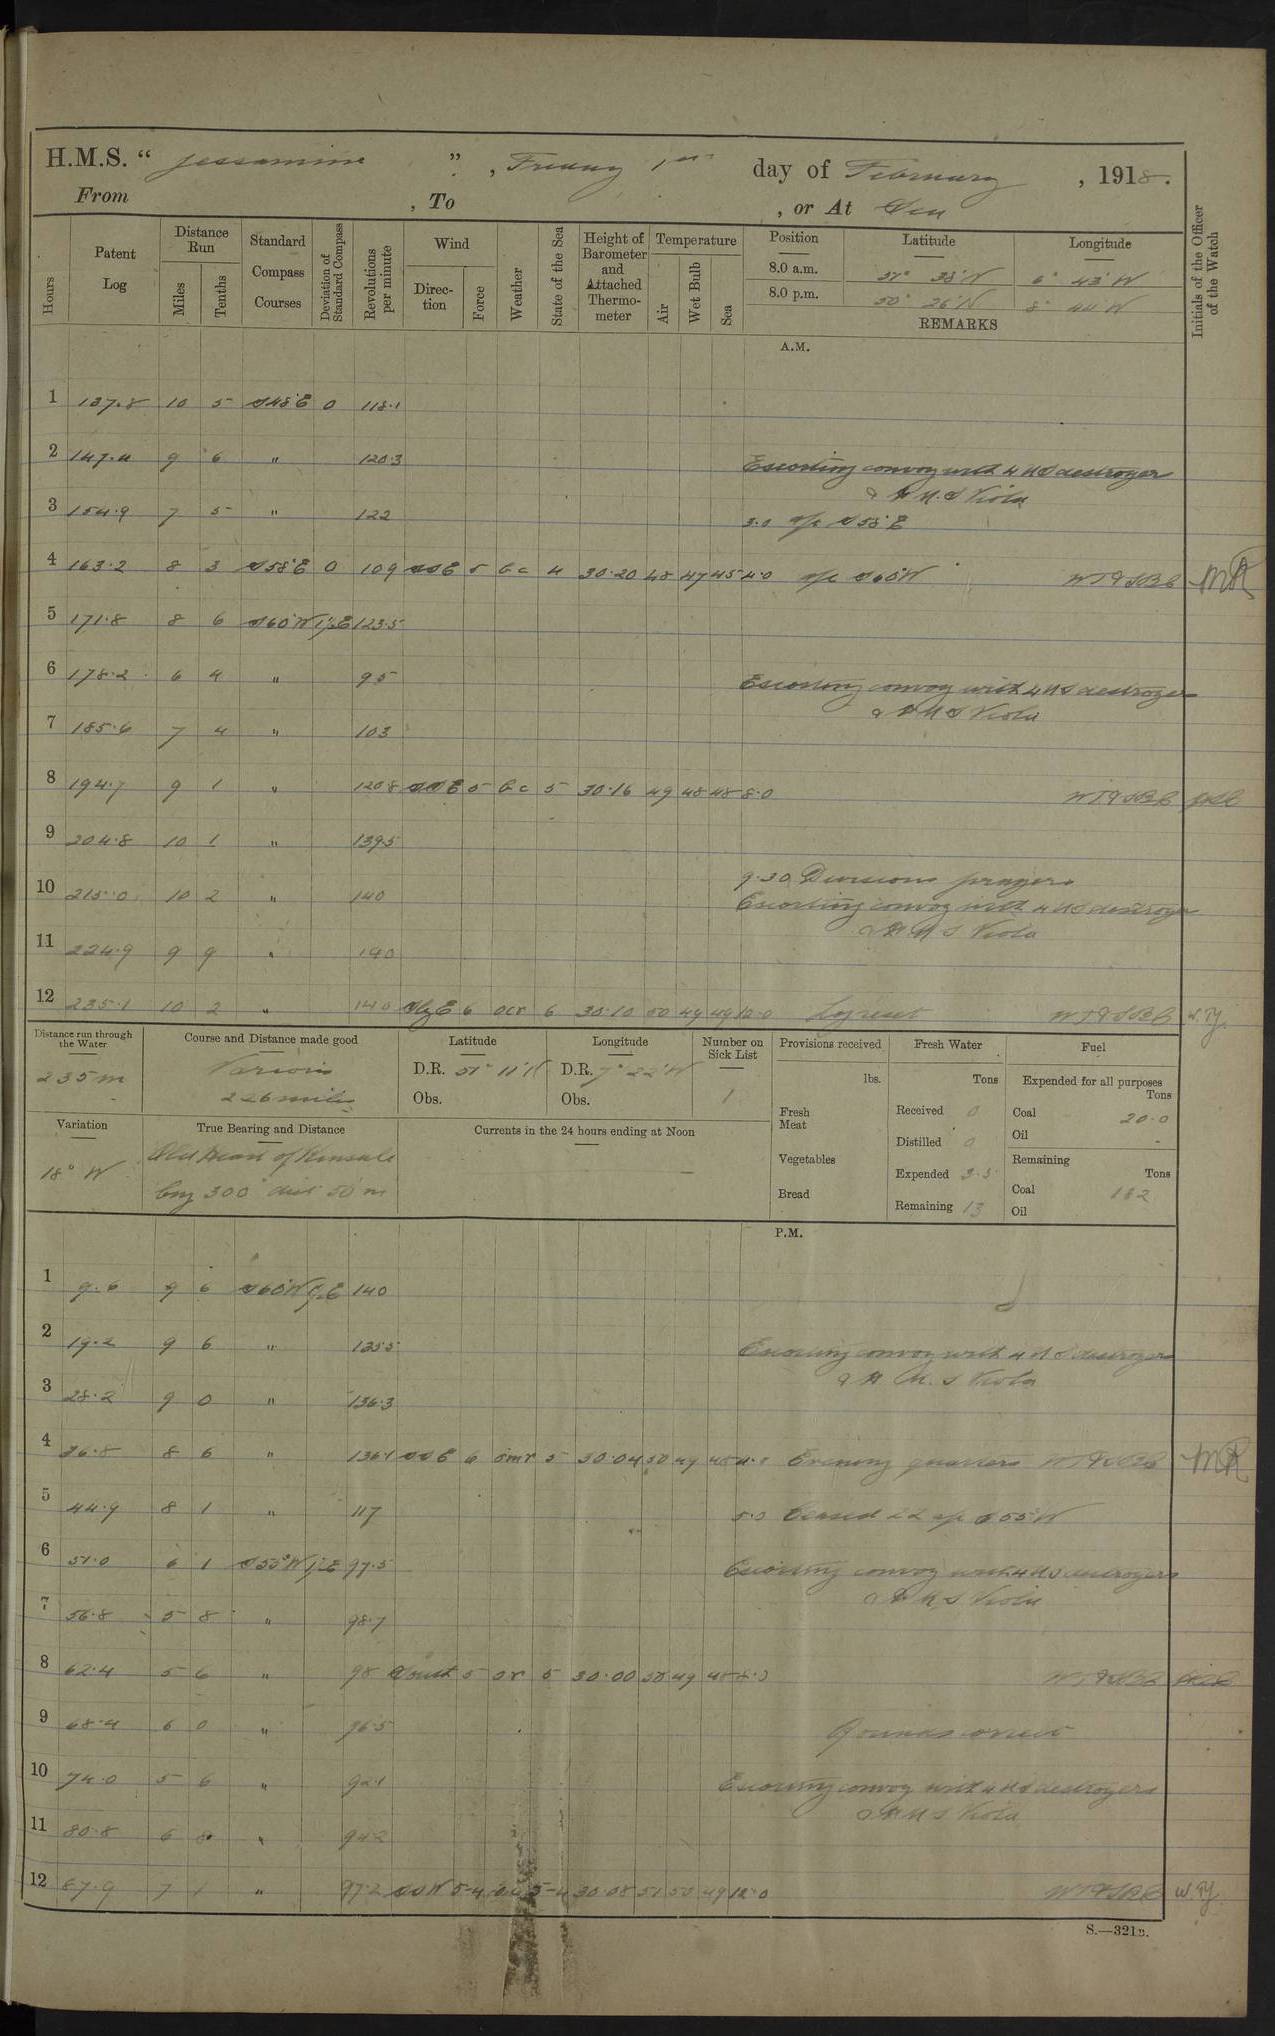 H.M.S. “ Jessamine ”, Friday 1st day of February, 1918.
From , To , or At Sea
Hours Patent Log Distance Run Miles Tenths Standard Compass Courses Deviation of Standard Compass Revolutions per minute Wind Direction Force Weather State of the Sea Height of Barometer and Attached Thermometer Temperature Air Wet Bulb Sea Position Latitude Longitude Initials of the Officer of the Watch
8.0 a.m. 51° 38'N 6° 43'W
8.0 p.m. 50° 26'N 8° 44'W
REMARKS
A.M.
1 137.8 10 5 S48°E 0 118.1
2 147.4 9 6 " 120.3
Escorting convoy with 4 US destroyer
& H.M.S Viola
3 154.9 7 5 " 122
3.0 a/c S58°E
4 163.2 8 3 S58°E 0 109 SSE 5 bc 4 30.20 48 47 45 4.0 a/c S60°W WT&SBC MR
5 171.8 8 6 S60°W 1½E 123.5
6 178.2 6 4 " 95
Escorting convoy with 4 US destroyers
& HMS Viola
7 185.6 7 4 " 103
8 194.7 9 1 " 120.8 SSE 5 bc 5 30.16 49 48 48 8.0 WT&SBC
9 204.8 10 1 " 139.5
9.30 Divisions prayers
10 215.0 10 2 " 140
Escorting convoy with 4 US destroyer
& HMS Viola
11 224.9 9 9 " 140
12 235.1 10 2 " 140 SbyE 6 ocr 6 30.10 50 49 49 12.0 Log reset WT&SBC W.J.
Distance run through the Water Course and Distance made good Latitude Longitude Number on Sick List Provisions received Fresh Water Fuel
235m Various 226 miles D.R. 51° 11'N D.R. 7° 22'W 1
Obs. Obs.
lbs. Tons Expended for all purposes Tons
Fresh Meat Received 0 Coal 20.0
Oil -
Variation True Bearing and Distance Currents in the 24 hours ending at Noon
Distilled 0
18° W Old Head of Kinsale
brg 300° dist 50 m
—
Vegetables Expended 3.5 Remaining Tons
Bread Remaining 13 Coal 162
Oil
P.M.
1 9.6 9 6 S60°W 1½E 140
2 19.2 9 6 " 135.5
Escorting convoy with 4 US destroyers
& H M.S Viola
3 28.2 9 0 " 136.3
4 36.8 8 6 " 136.1 SSE 6 omr 5 30.04 50 49 48 4.0 Evening quarters WT&SBC MR
5 44.9 8 1 " 117
5.0 Ceased ZZ a/c S55°W
6 51.0 6 1 S55°W 1½E 97.5
Escorting convoy with 4 US destroyers
& HMS Viola
7 56.8 5 8 " 98.7
8 62.4 5 6 " 98 South 5 or 5 30.00 50 49 48 8.0 WT&SBC
9 68.4 6 0 " 96.5
Rounds correct
10 74.0 5 6 " 92.1
Escorting convoy with 4 US destroyers
& HMS Viola
11 80.8 6 8 " 94.2
12 87.9 7 1 " 97.2 SSW 5-4 bc 5-4 30.08 51 50 49 12.0 WT&SBC W.J.
S.—321B.